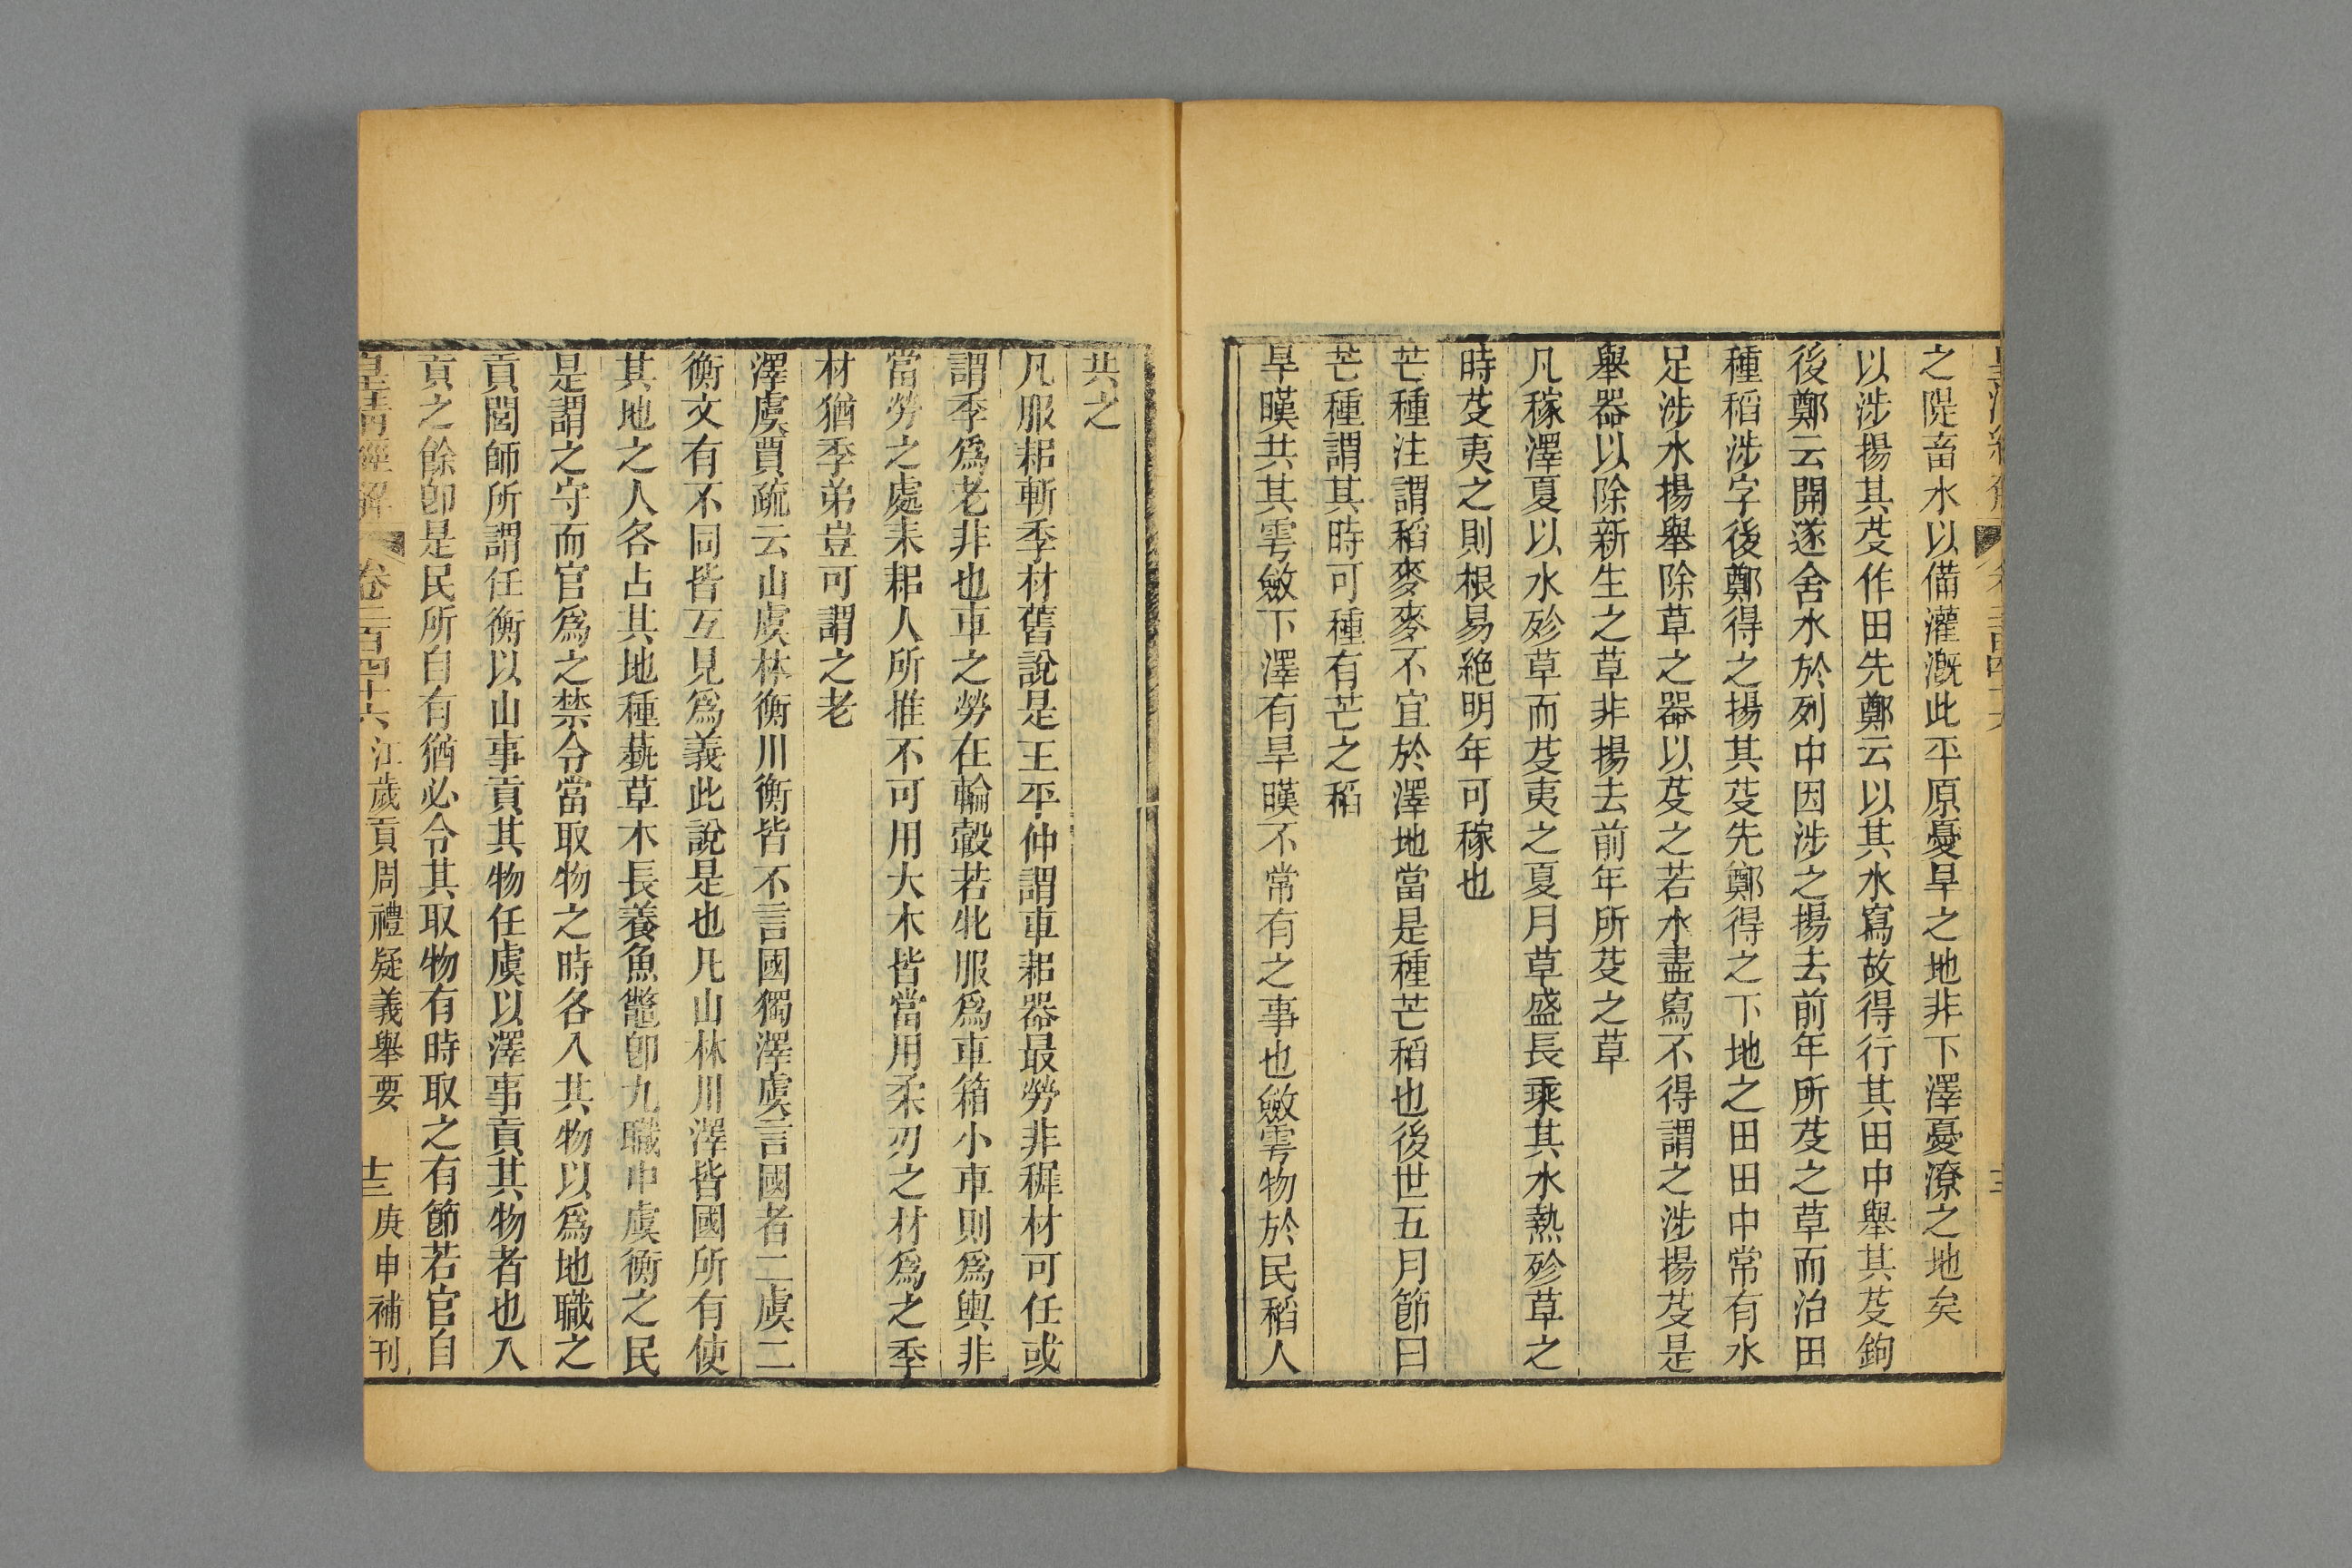 之隄畜水以備灌漑此平原憂旱之地非下澤憂潦之地矣
以涉揚其芟作田先鄭云以其水寫故得行其田中舉其芟鉤
後鄭云開遂舍水於列中因涉之揚去前年所芟之草而治田
種稻涉字後鄭得之揚其芟先鄭得之下地之田田中常有水
足涉水揚舉除草之器以芟之若水盡寫不得謂之涉揚芟是
舉器以除新生之草非揚去前年所芟之草
凡稼澤夏以水殄草而芟夷之夏月草盛長乘其水熱殄草之
時芟夷之則根易絶明年可稼也
芒種注謂稻麥麥不宜於澤地當是種芒稻也後世五月節曰
芒種謂其時可種有芒之稻
旱暵共其雩斂下澤有旱暵不常有之事也斂雩物於民稻人
共之
凡服耜斬季材舊說是王平仲謂車耜器最勞非穉材可任或
謂季爲老非也車之勞在輪轂若牝服爲車箱小車則爲輿非
當勞之處耒耜人所推不可用大木皆當用柔刃之材爲之季
材猶季弟豈可謂之老
澤虞賈疏云山虞林衡川衡皆不言國獨澤虞言國者二虞二
衡文有不同皆互見爲義此說是也凡山林川澤皆國所有使
其地之人各占其地種蓺草木長養魚鼈卽九職中虞衡之民
是謂之守而官爲之禁令當取物之時各入其物以爲地職之
貢閭師所謂任衡以山事貢其物任虞以澤事貢其物者也入
貢之餘卽是民所自有猶必令其取物有時取之有節若官自
皇清經解 卷二百四十六 江歲貢周禮疑義舉要 十三 庚申補刊